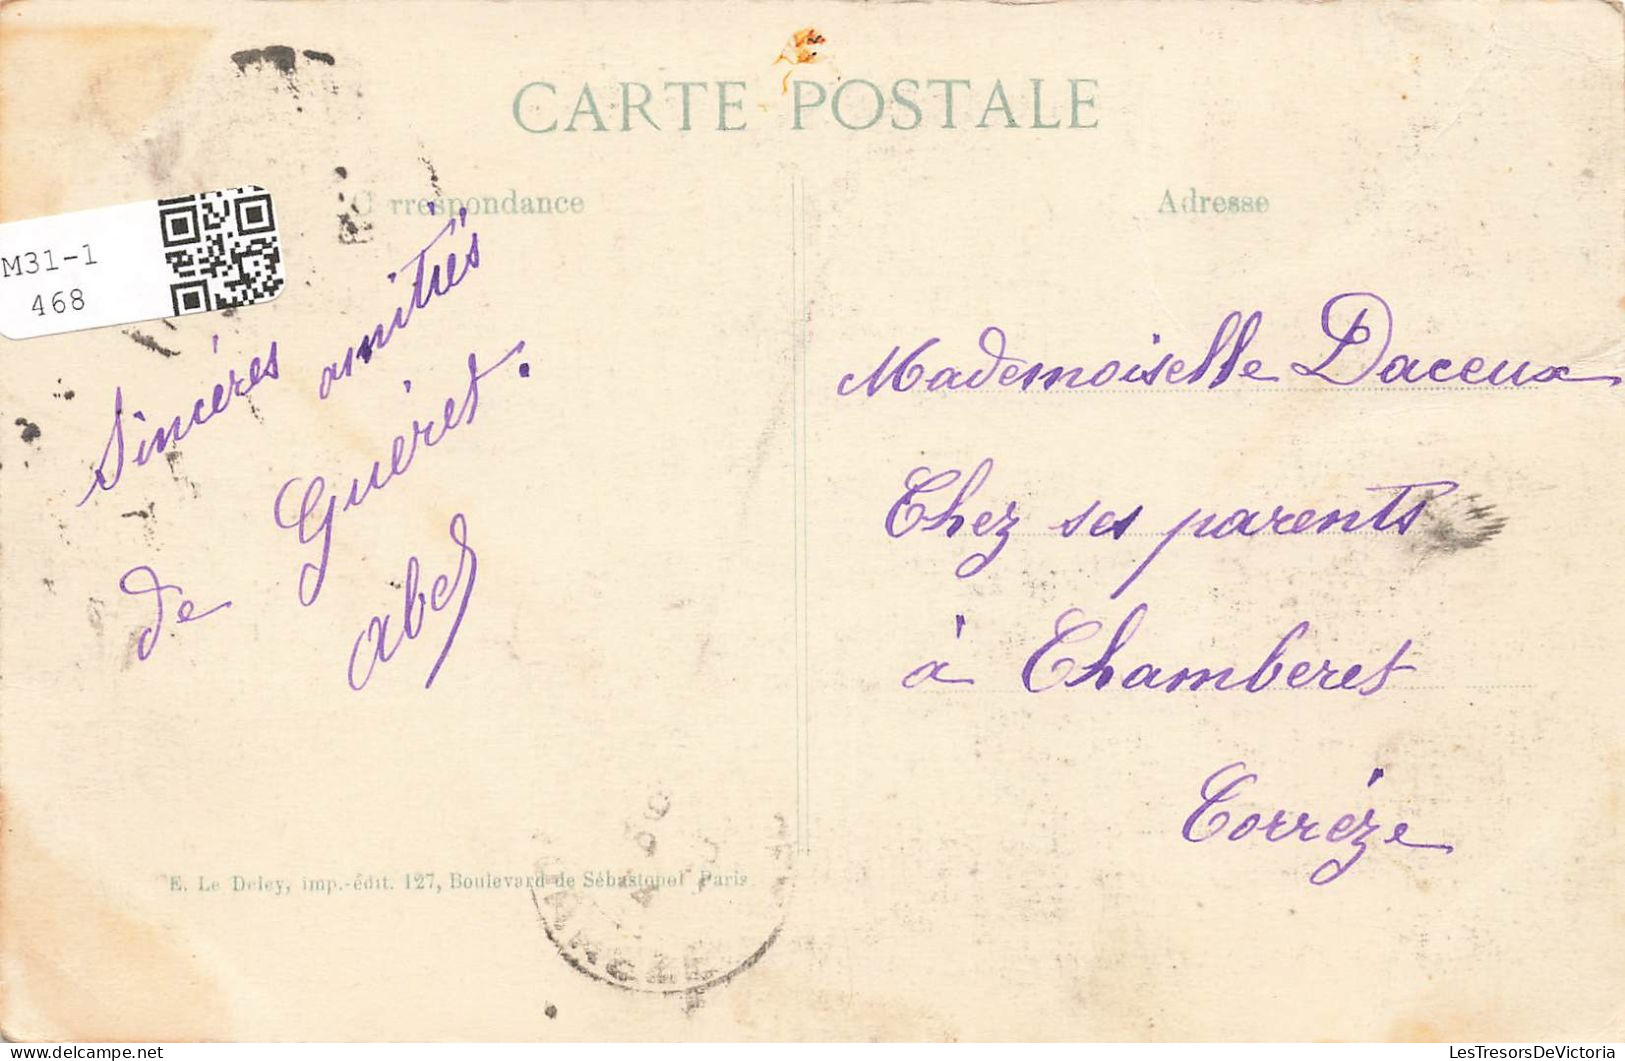 CARTE POSTALE
Correspondance
Adresse
M31-1
468
Sincères amitiés
de Guéret.
Abel
Mademoiselle Daceux
Chez ses parents
à Chamberet
Corrèze
E. Le Deley, imp.-édit. 127, Boulevard de Sébastopol Paris
LesTresorsDeVictoria